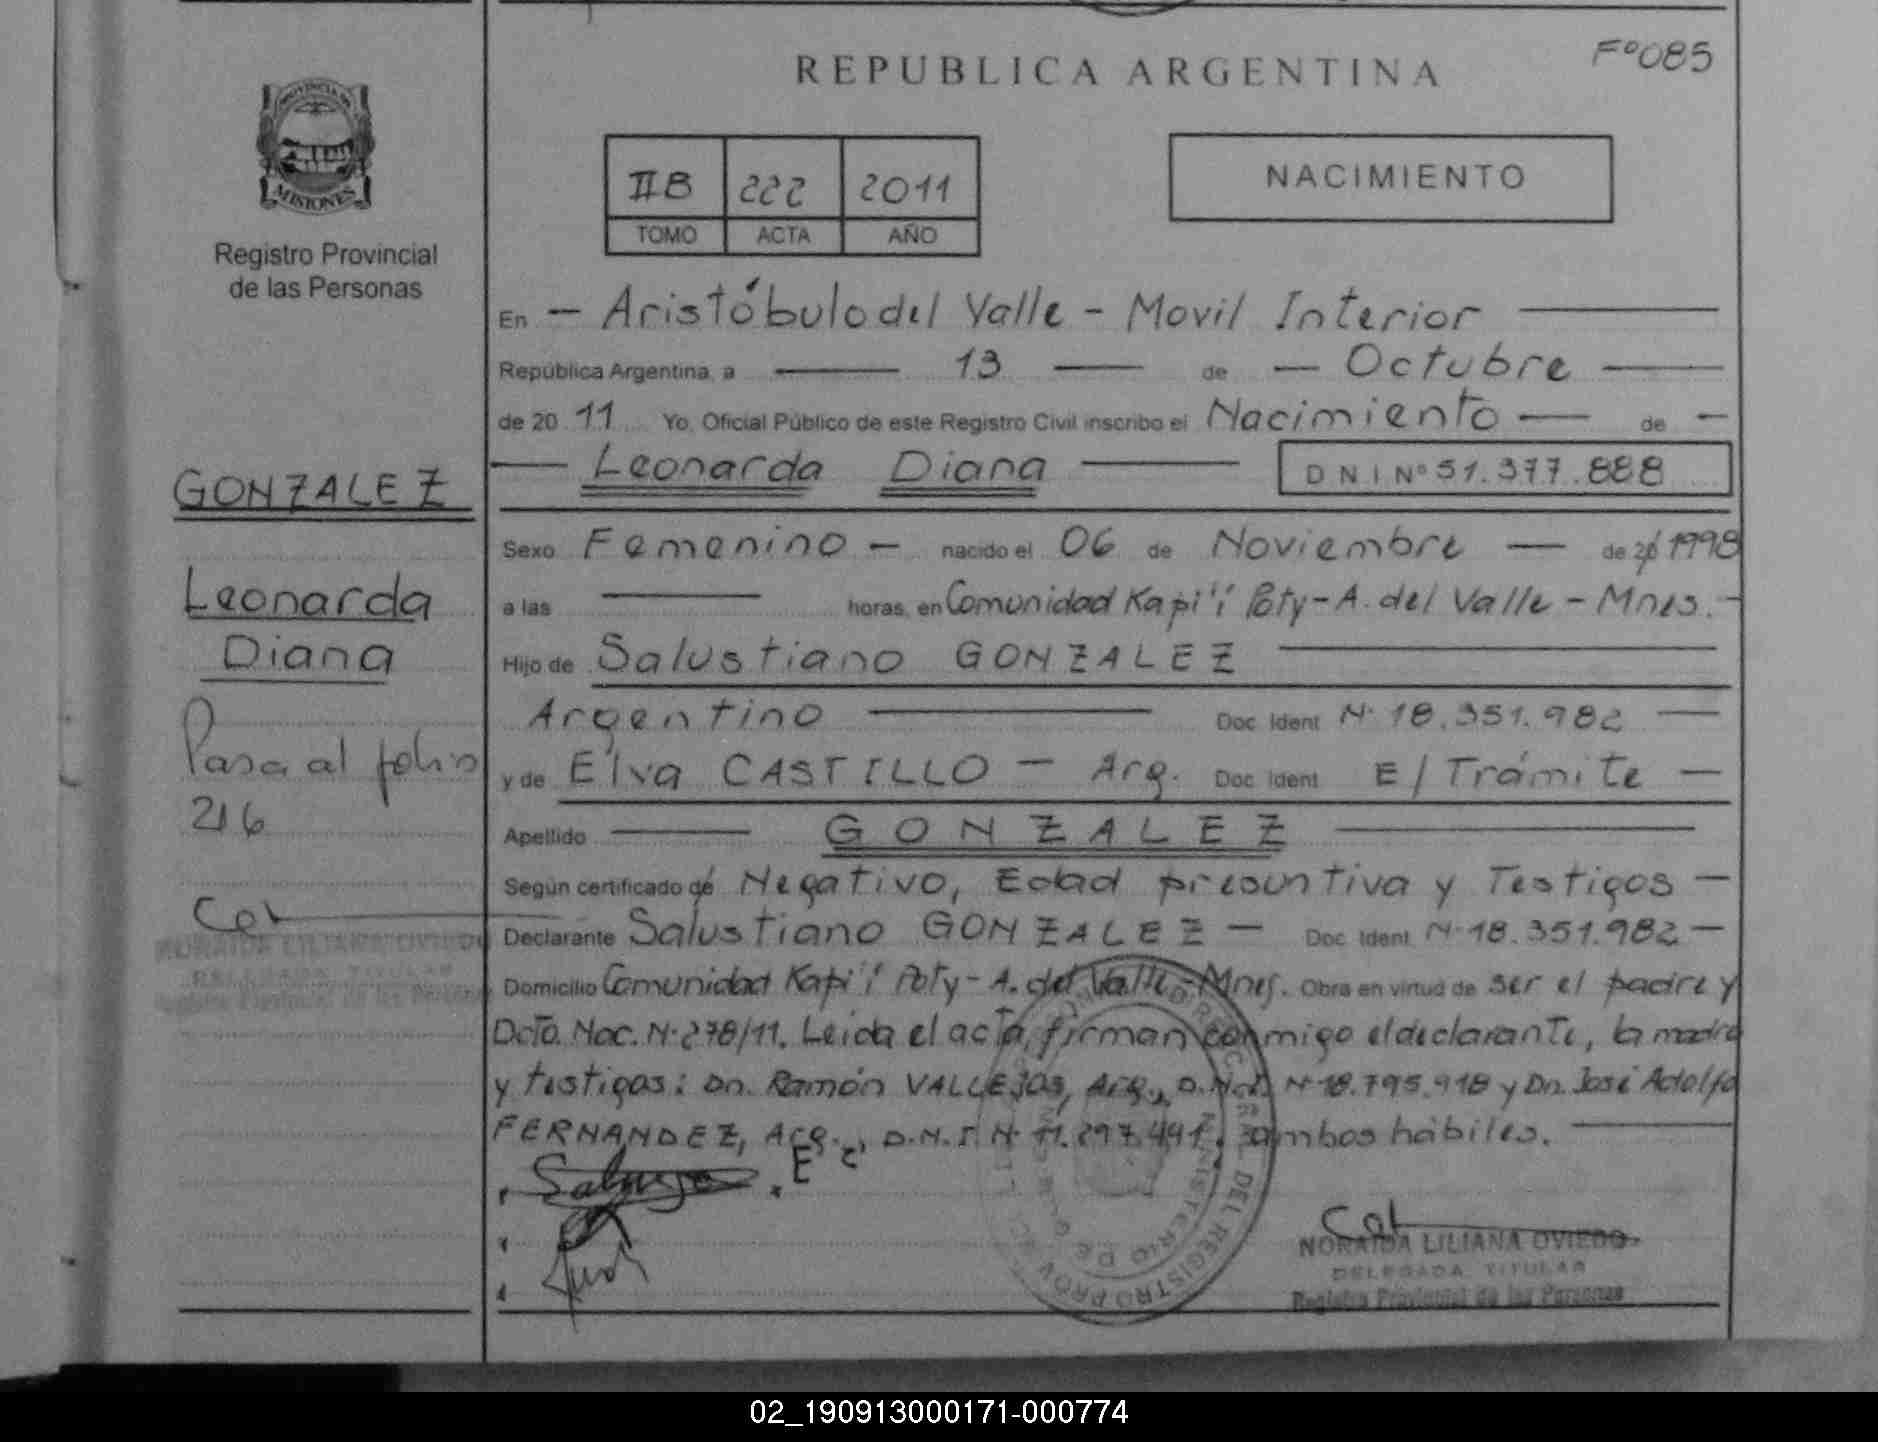 REPUBLICA ARGENTINA
Fº085
PROVINCIA DE
MISIONES
Registro Provincial
de las Personas
IIB 222 2011
TOMO ACTA AÑO
NACIMIENTO
En — Aristóbulo del Valle - Movil Interior —
República Argentina, a — 13 — de — Octubre —
de 20 11 Yo, Oficial Público de este Registro Civil inscribo el Nacimiento — de —
— Leonarda Diana — DNI Nº 51.377.888
GONZALEZ
Leonarda
Diana
Pasa al folio
216
NORAIDA LILIANA OVIEDO
DELEGADA TITULAR
Registro Provincial de las Personas
Sexo Femenino — nacido el 06 de Noviembre — de 20 1998
a las — horas, en Comunidad Kapi'í Poty - A. del Valle - Mnes. -
Hijo de Salustiano GONZALEZ —
Argentino — Doc Ident Nº 18.351.982 —
y de Elva CASTILLO — Arg. Doc Ident E/Trámite —
Apellido — GONZALEZ —
Según certificado de Negativo, Edad presuntiva y Testigos —
Declarante Salustiano GONZALEZ — Doc Ident Nº 18.351.982 —
Domicilio Comunidad Kapi'í Poty - A. del Valle - Mnes. Obra en virtud de ser el padre y
Dcto. Nac. Nº 278/11. Leida el acta, firman conmigo el declarante, la madre
y testigos: Dn. Ramón VALLEJOS, Arg., D.N.I. Nº 18.795.918 y Dn. José Adolfo
FERNANDEZ, Arg., D.N.I. Nº 11.297.441, ambos hábiles. —
NORAIDA LILIANA OVIEDO
DELEGADA TITULAR
Registro Provincial de las Personas
02_190913000171-000774